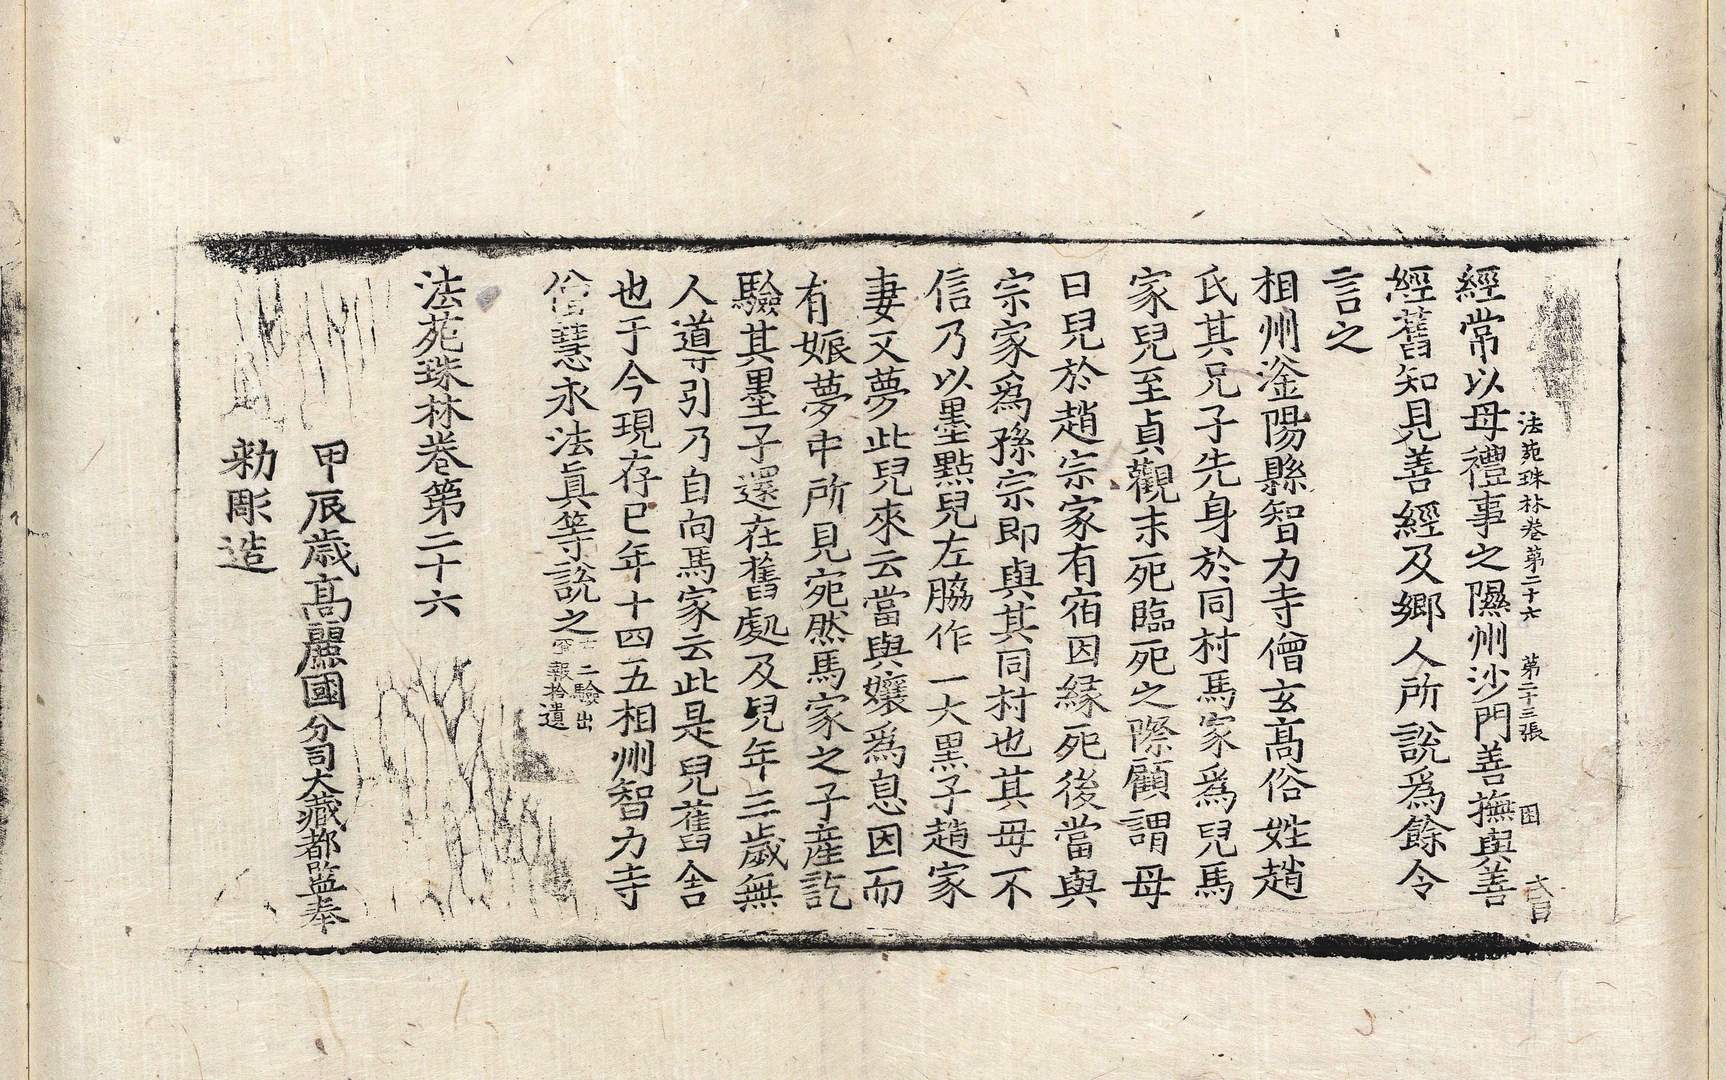 法苑珠林卷第二十六 第二十三張 困
經常以母禮事之隰州沙門善撫與善
經舊知見善經及鄉人所說爲餘令
言之
相州滏陽縣智力寺僧玄高俗姓趙
氏其兄子先身於同村馬家爲兒馬
家兒至貞觀末死臨死之際顧謂母
曰兒於趙宗家有宿因緣死後當與
宗家爲孫宗即與其同村也其母不
信乃以墨點兒左脇作一大黑子趙家
妻又夢此兒來云當與孃爲息因而
有娠夢中所見宛然馬家之子產訖
驗其墨子還在舊處及兒年三歲無
人道引乃自向馬家云此是兒舊舍
也于今現存已年十四五相州智力寺
僧慧永法眞等說之右二驗出冥報拾遺
法苑珠林卷第二十六
甲辰歲高麗國分司大藏都監奉
勅彫造